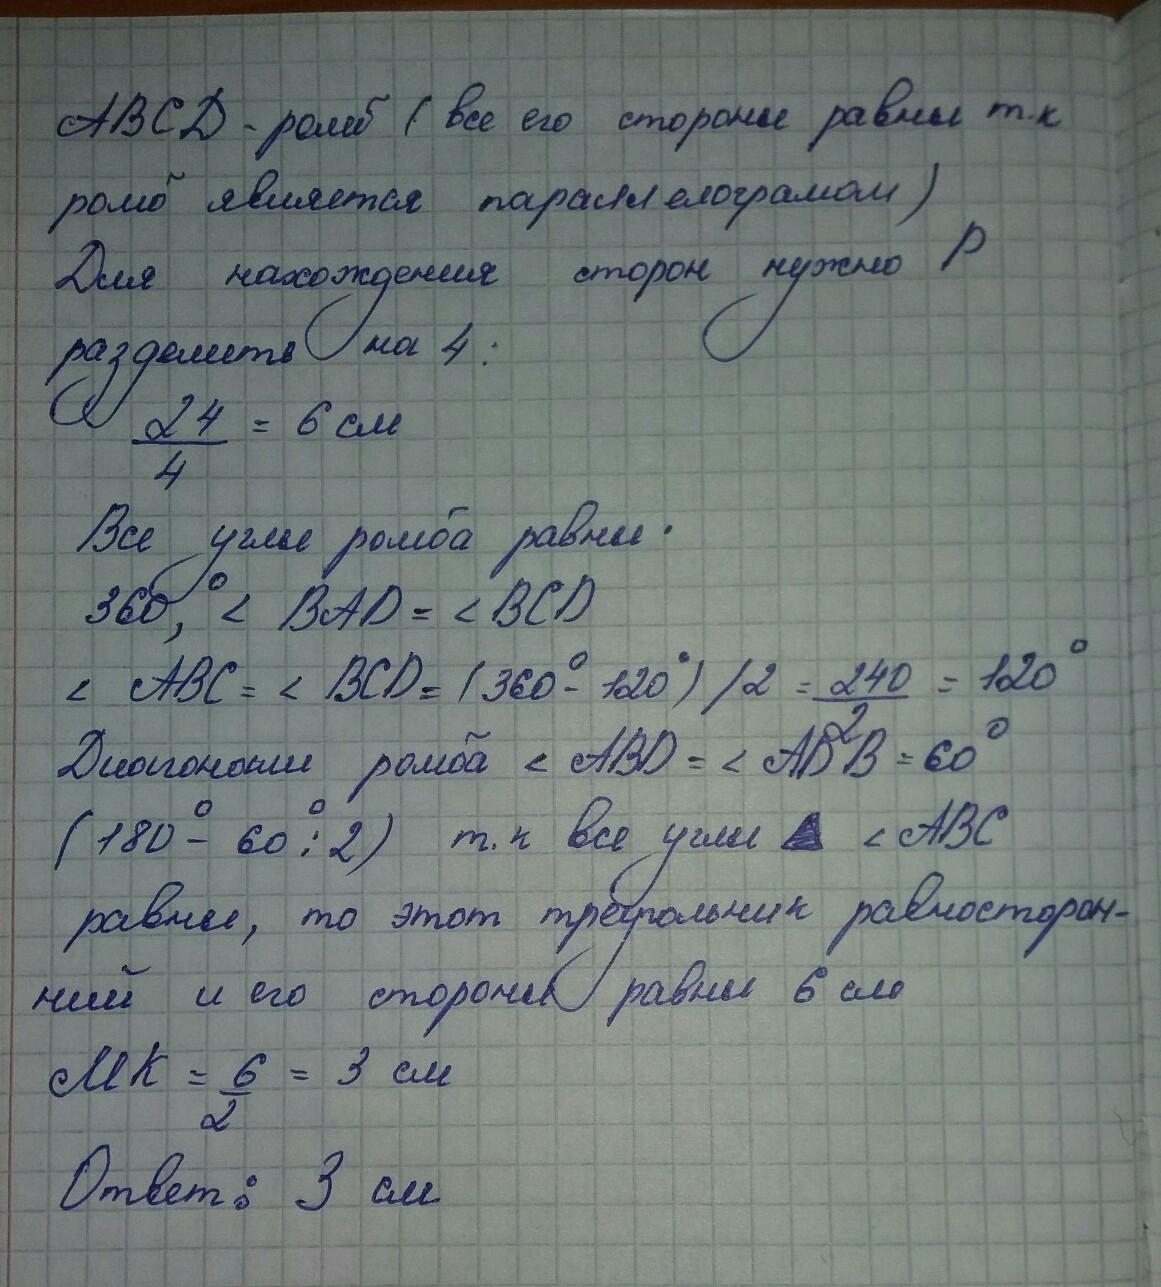 ABCD - ромб ( все его стороны равны т.к
ромб является параллелограмом)
Для нахождения сторон нужно P
разделить на 4:
24/4 = 6 см
Все углы ромба равны.
360°, < BAD = < BCD
< ABC = < BCD = (360° - 120°) /2 = 240/2 = 120°
Диагонали ромба < ABD = < ADB = 60°
(180° - 60° : 2) т.к все углы < ABC
равны, то этот треугольник равносторон-
ний и его стороны равны 6 см
MK = 6/2 = 3 см
Ответ: 3 см